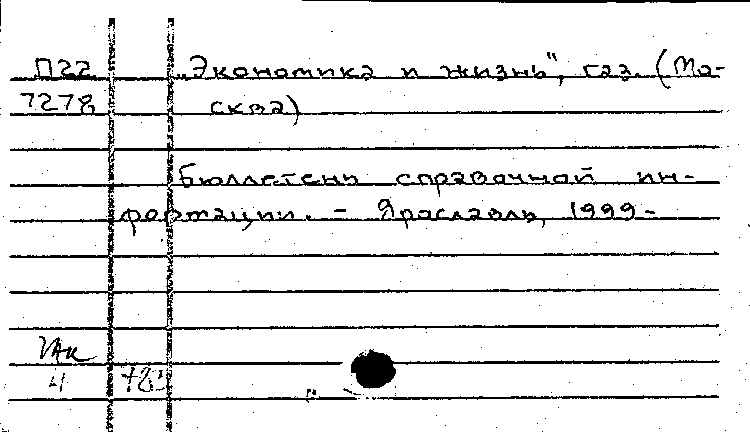 П22 „Экономика и жизнь", газ. (Мо-
7278 сква)
Бюллетень справочной ин-
формации. – Ярославль, 1999-